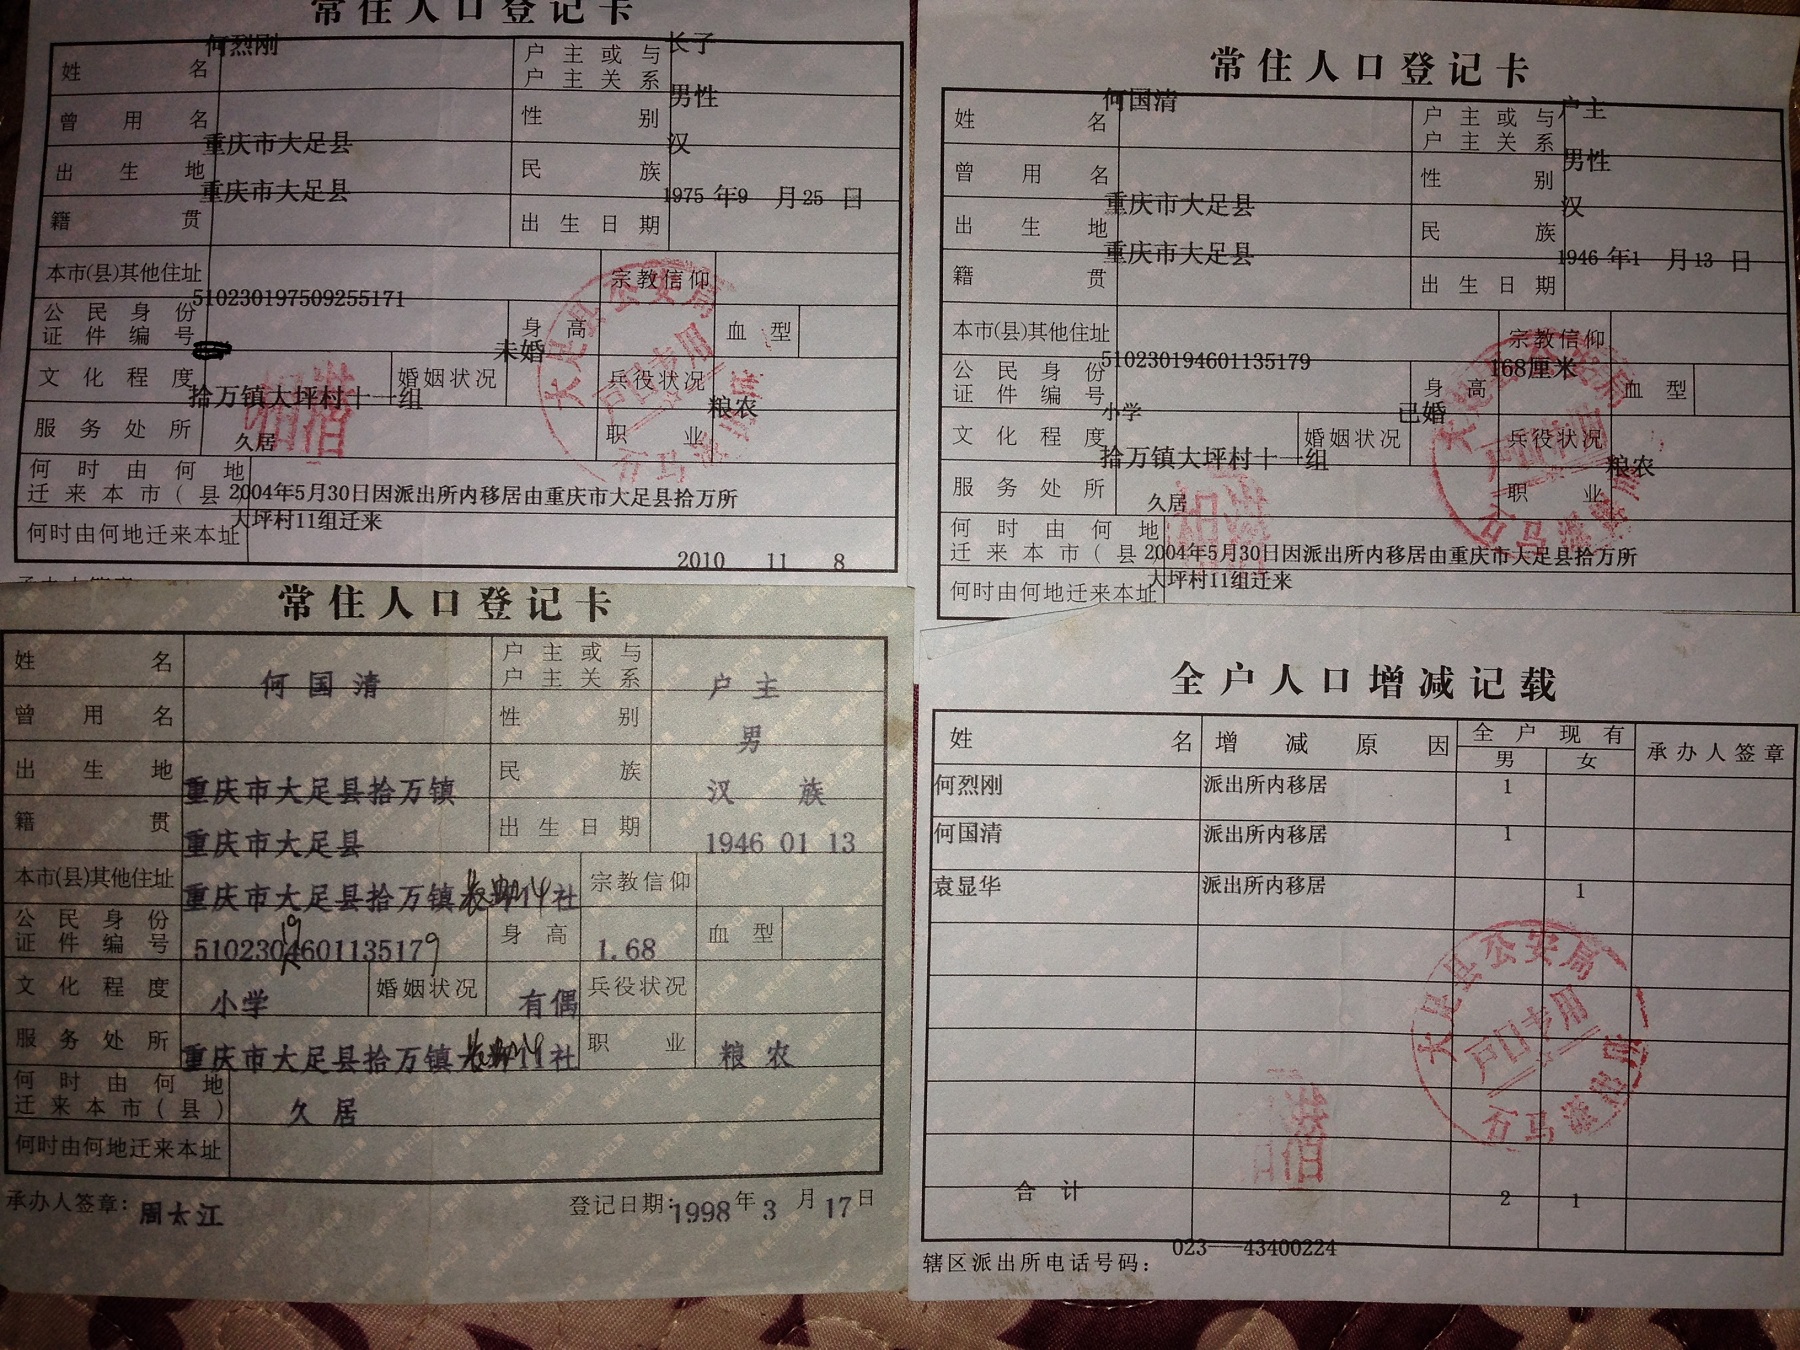 常住人口登记卡
姓名 何烈刚 户主或与户主关系 长子
曾用名 性别 男性
出生地 重庆市大足县 民族 汉
籍贯 重庆市大足县 出生日期 1975 年9 月25 日
本市(县)其他住址 宗教信仰
公民身份证件编号 510230197509255171 身高 血型
文化程度 婚姻状况 未婚 兵役状况
服务处所 拾万镇大坪村十一组 职业 粮农
何时由何地迁来本市(县) 久居
何时由何地迁来本址 2004年5月30日因派出所内移居由重庆市大足县拾万所
大坪村11组迁来
2010 11 8
大足县公安局
户口专用
石马派出所
常住人口登记卡
姓名 何国清 户主或与户主关系 户主
曾用名 性别 男性
出生地 重庆市大足县 民族 汉
籍贯 重庆市大足县 出生日期 1946 年1 月13 日
本市(县)其他住址 宗教信仰
公民身份证件编号 510230194601135179 身高 168厘米 血型
文化程度 小学 婚姻状况 已婚 兵役状况
服务处所 拾万镇大坪村十一组 职业 粮农
何时由何地迁来本市(县) 久居
何时由何地迁来本址 2004年5月30日因派出所内移居由重庆市大足县拾万所
大坪村11组迁来
常住人口登记卡
姓名 何国清 户主或与户主关系 户主
曾用名 性别 男
出生地 重庆市大足县拾万镇 民族 汉族
籍贯 重庆市大足县 出生日期 1946 01 13
本市(县)其他住址 重庆市大足县拾万镇 社 宗教信仰
公民身份证件编号 510230194601135179 身高 1.68 血型
文化程度 小学 婚姻状况 有偶 兵役状况
服务处所 重庆市大足县拾万镇 社 职业 粮农
何时由何地迁来本市(县) 久居
何时由何地迁来本址
承办人签章: 周太江 登记日期: 1998 年 3 月 17 日
全户人口增减记载
姓名 增减原因 全户现有 承办人签章
男 女
何烈刚 派出所内移居 1
何国清 派出所内移居 1
袁显华 派出所内移居 1
大足县公安局
户口专用
石马派出所
合计 2 1
辖区派出所电话号码: 023—43400224